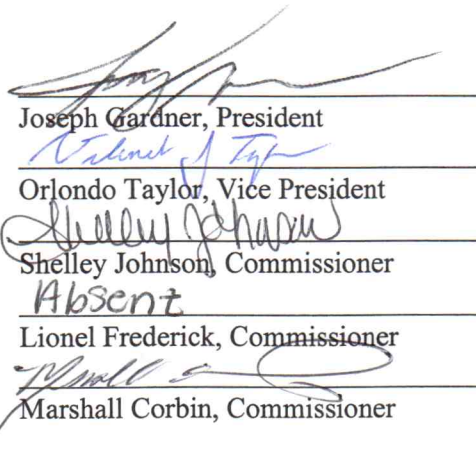 Joseph Gardner, President
Orlondo Taylor, Vice President
Shelley Johnson
Shelley Johnson, Commissioner
Absent
Lionel Frederick, Commissioner
Marshall Corbin, Commissioner